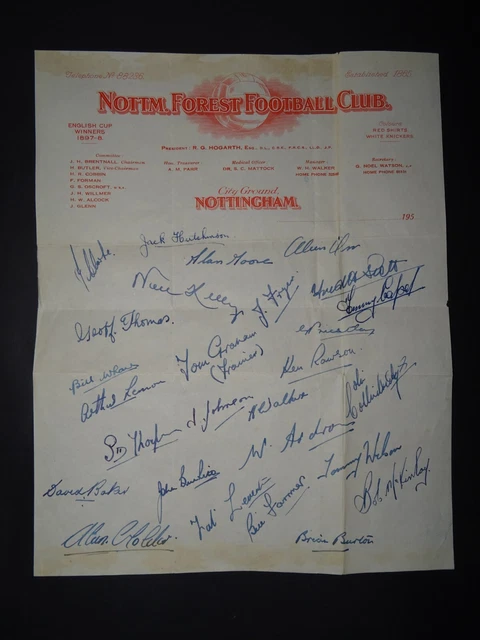 Telephone No 68236.
Established 1865.
NOTTM. FOREST FOOTBALL CLUB.
ENGLISH CUP
WINNERS
1897-8
Colours:
RED SHIRTS
WHITE KNICKERS
President: R. G. HOGARTH, Esq.
Committee:
J. H. BRENTNALL, Chairman
H. BUTLER, Vice-Chairman
H. R. COBBIN
F. FORMAN
G. S. OSCROFT
J. H. WILLMER
H. W. ALCOCK
J. GLENN
Hon. Treasurer
A. H. PARR
Medical Officer
DR. S. C. MATTOCK
Manager
W. H. WALKER
HOME PHONE
Secretary:
G. NOEL WATSON,
HOME PHONE
City Ground,
NOTTINGHAM.
195
Jack Hutchinson
Alan Moore
Alan Orr
Noel Kelly
J. Frazer
Freddie Scott
Tommy Capel
Geoff. Thomas.
Tom Graham
(Trainer)
Ken Rawson.
Bill Whare
Arthur Lemon
W Walker
Colin Collindridge
J Johnson
W. Ardron
David Baker
John Burkitt
Tommy Wilson
Bob McKinlay.
Bill Farmer
Alan C
Brian Burton